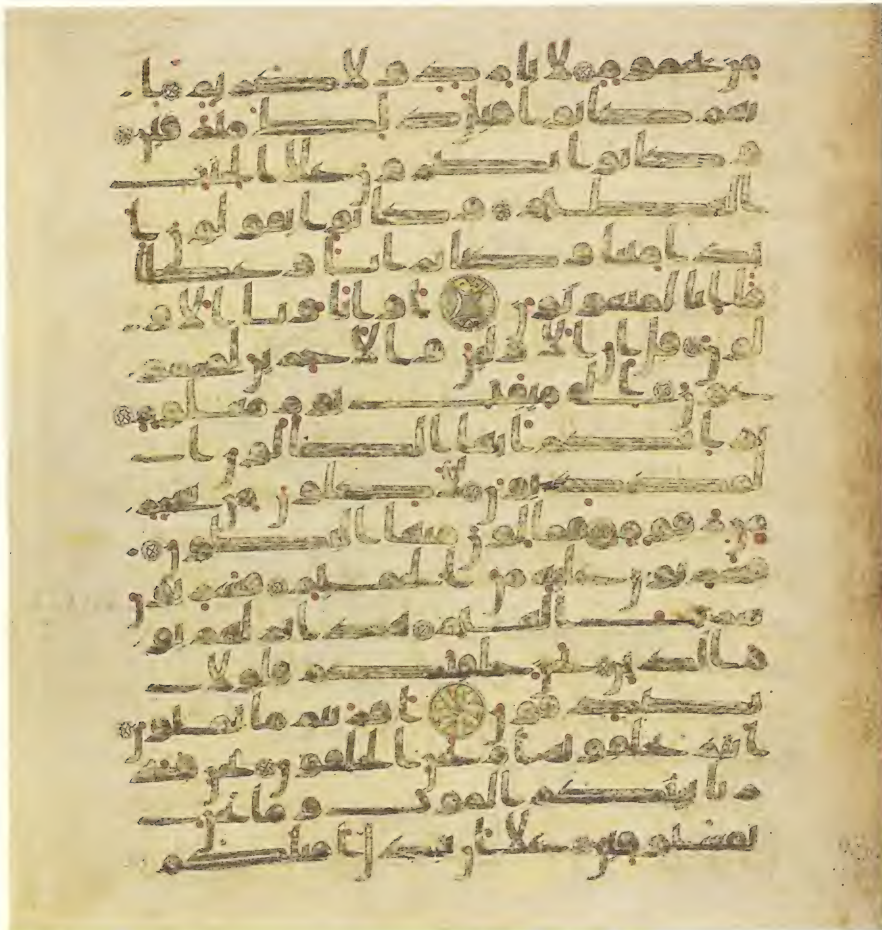 من يحموم لا بارد ولا كريم ا
نهم كانوا قبل ذلك مترفين
وكانوا يصرون على الحنث
العظيم وكانوا يقولون ا
يذا متنا وكنا ترابا وعظما
انا لمبعوثون اواباونا الاو
لون قل ان الاولين والاخرين لمجمو
عون الى ميقت يوم معلوم
ثم انكم ايها الضالون ا
لمكذبون لاكلون من شجر
من زقوم فمالون منها البطون
فشربون عليه من الحميم فشربون
شرب الهيم هذا نزلهم يو
م الدين نحن خلقنكم فلولا
تصدقون افريتم ما تمنون
انتم تخلقونه ام نحن الخلقون نحن قد
رنا بينكم الموت وما نحن
بمسبوقين على ان نبدل امثلكم